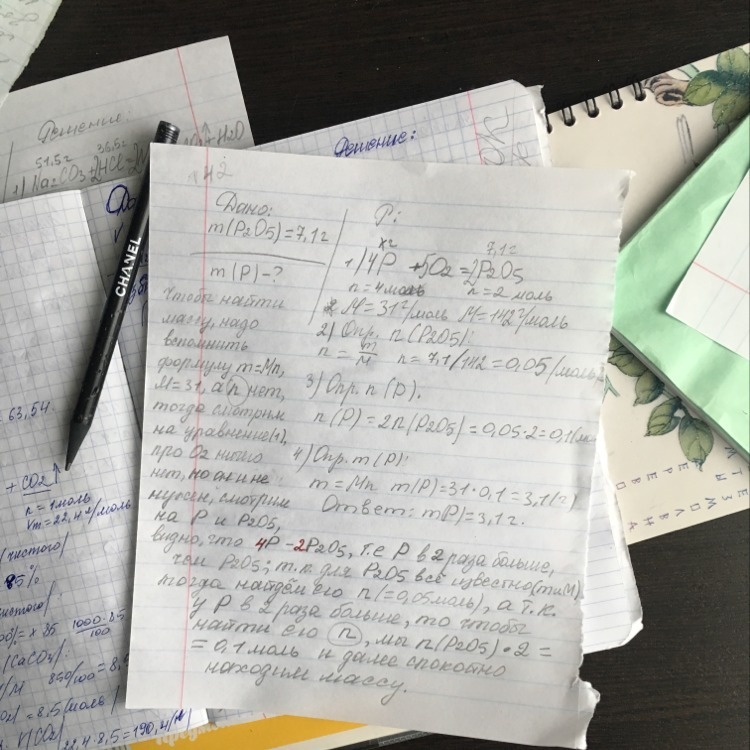 Решение:
51,5г 36,5г
1) Na2CO3+2HCl=2N
+H2O
Решение:
CHANEL
= 63,54.
+ CO2↑
n = 1 моль
Vm = 22,4 г/моль
чистого
85%
чистого
x 35 1000·8,5
100
(CaCO3)
850/100 = 8,5
= 8,5/моль
22,4·8,5=190,4
142
Дано: Р:
m(P2O5)=7,1г
m(P)-?
xг 7,1г
1) 4P + 5O2 = 2P2O5
n = 4моль n = 2 моль
M = 31 г/моль M = 142 г/моль
2) Опр. n(P2O5):
n = m/M n = 7,1/142 = 0,05/моль
3) Опр. n (P).
n(P) = 2n(P2O5) = 0,05·2 = 0,1/мо
4) Опр. m(P):
m = Mn m(P) = 31·0,1 = 3,1(г)
Ответ: mP)=3,1г.
Чтобы найти
массу, надо
вспомнить
формулу m=Mn,
M=31, а n нет,
тогда смотрим
на уравнение(1),
про O2 ничего
нет, но он и не
нужен, смотрим
на P и P2O5,
видно, что 4P – 2P2O5, т.е P в 2 раза больше,
чем P2O5; т.к. для P2O5 всё известно(m и M)
тогда найдём его n (=0,05моль), а т.к.
у P в 2 раза больше, то чтобы
найти его n, мы n(P2O5)·2 =
= 0,1 моль и далее спокойно
находим массу.